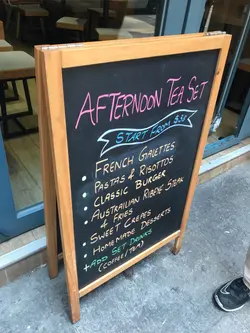 AFTERNOON TEA SET
START FROM $38
• FRENCH GALETTES
• PASTAS & RISOTTOS
• CLASSIC BURGER
• AUSTRALIAN RIBEYE STEAK
& FRIES
• SWEET CREPES
• HOMEMADE DESSERTS
+ADD SET DRINKS
(COFFEE/TEA)